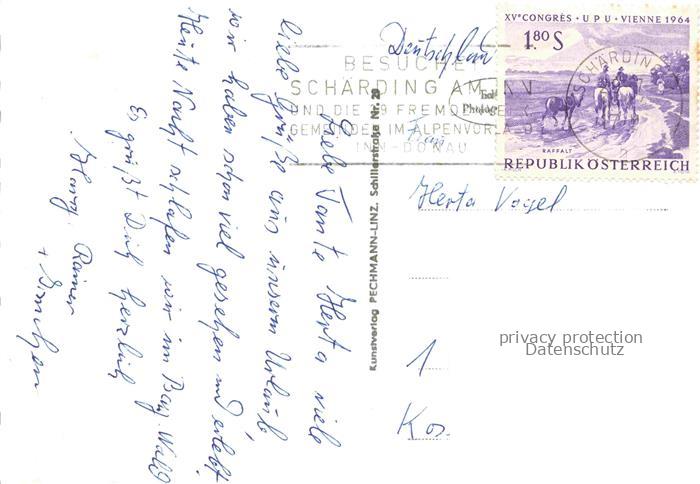 Liebe Tante Herta viele
liebe Grüße aus unserem Urlaub
wir haben schon viel gesehen und erlebt
Heute Nacht schlafen wir im Bay. Wald
Es grüßt Dich herzlich
Rainer
+
Kunstverlag PECHMANN-LINZ, Schillerstraße Nr. 29
Deutschland
BESUCHE
SCHÄRDING AM INN
UND DIE 19 FREMD
GEMEINDEN IM ALPENVORLA
INN-DONAU
XV^e CONGRÈS · UPU · VIENNE 1964
1.80 S
SCHÄRDING
RAFFALT
REPUBLIK ÖSTERREICH
Herta Vogel
1
privacy protection
Datenschutz